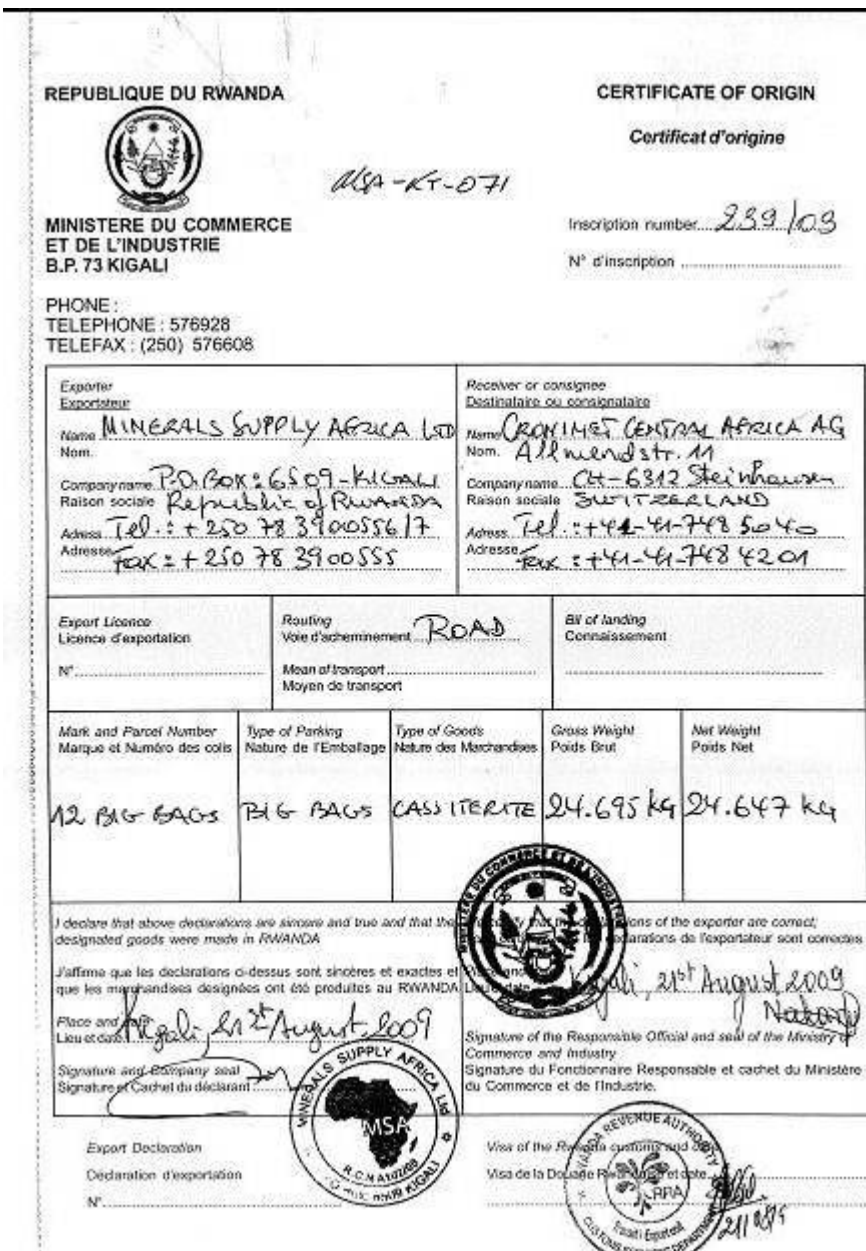 REPUBLIQUE DU RWANDA
CERTIFICATE OF ORIGIN
Certificat d'origine
MSA-KT-071
MINISTERE DU COMMERCE
ET DE L'INDUSTRIE
B.P. 73 KIGALI
Inscription number 239/09
N° d'inscription
PHONE :
TELEPHONE : 576928
TELEFAX : (250) 576608
Exporter
Exportateur
Name MINERALS SUPPLY AFRICA LTD
Nom.
Company name P.O.BOX: 6509-KIGALI
Raison sociale Republic of RWANDA
Adress Tel.: +250 78 3900556/7
Adresse Fax: +250 78 3900555
Receiver or consignee
Destinataire ou consignataire
Name CRONIMET CENTRAL AFRICA AG
Nom. Allmendstr. 11
Company name CH-6312 Steinhausen
Raison sociale SWITZERLAND
Adress Tel.: +41-41-748 5040
Adresse Fax: +41-41-748 4201
Export Licence
Licence d'exportation
N°
Routing
Voie d'acheminement ROAD
Mean of transport
Moyen de transport
Bil of landing
Connaissement
Mark and Parcel Number
Marque et Numéro des colis
Type of Parking
Nature de l'Emballage
Type of Goods
Nature des Marchandises
Gross Weight
Poids Brut
Net Weight
Poids Net
12 BIG BAGS
BIG BAGS
CASSITERITE
24.695 kg
24.647 kg
I declare that above declarations are sincere and true and that the
designated goods were made in RWANDA
J'affirme que les declarations ci-dessus sont sincères et exactes et
que les marchandises designées ont été produites au RWANDA
Place and date
Lieu et date Kigali, 21st August 2009
Signature and Company seal
Signature et Cachet du déclarant
that the declarations of the exporter are correct;
declarations de l'exportateur sont correctes
Kigali, 21st August 2009
Signature of the Responsible Official and seal of the Ministry of
Commerce and Industry
Signature du Fonctionnaire Responsable et cachet du Ministère
du Commerce et de l'Industrie.
MINISTERE DU COMMERCE ET DE L'INDUSTRIE
MINERALS SUPPLY AFRICA Ltd
MSA
KIGALI
Export Declaration
Déclaration d'exportation
N°
Visa of the Rwanda customs and
Visa de la Douane et date
RWANDA REVENUE AUTHORITY
RRA